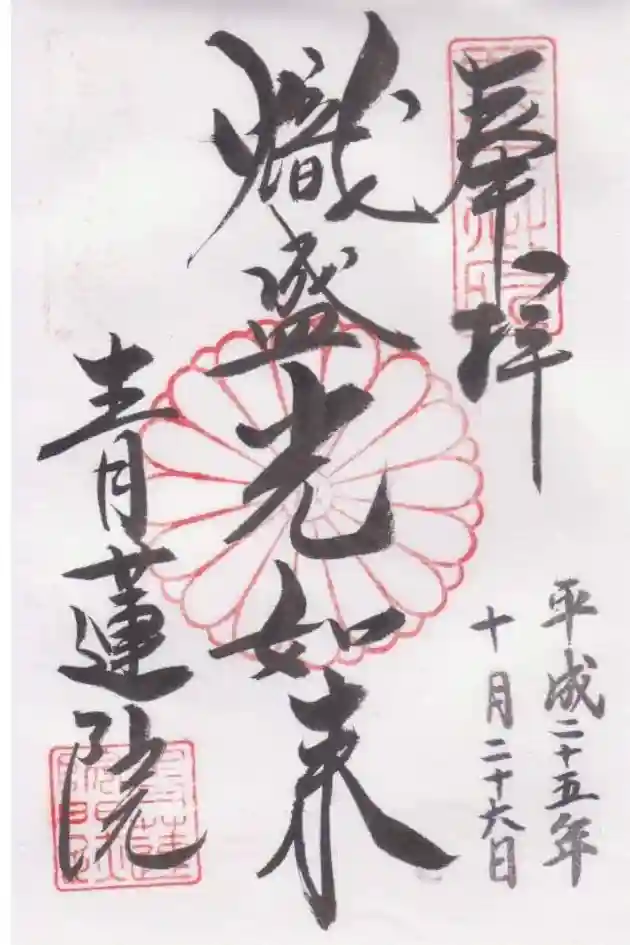 奉拝
平成二十五年
十月二十六日
熾盛光如来
青蓮院